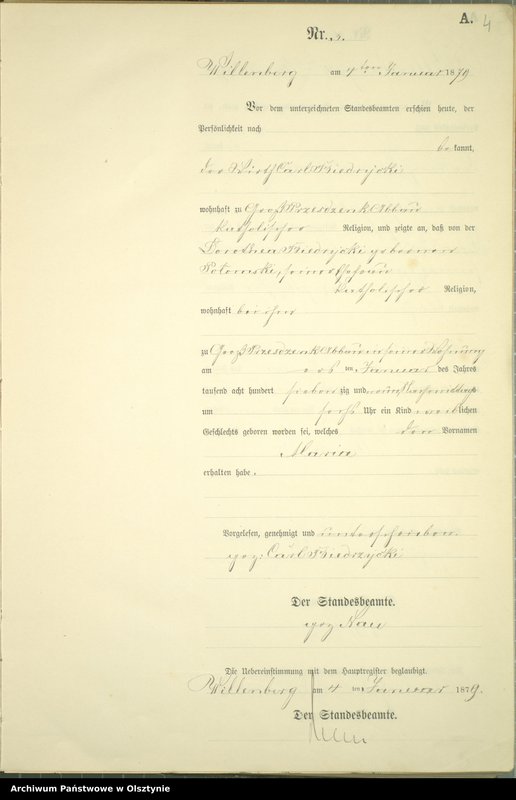 A. 4
Nr. 3.
Willenberg am 4ten Januar 1879
Vor dem unterzeichneten Standesbeamten erschien heute, der
Persönlichkeit nach
bekannt,
der Wirth Carl Biedrzycki
wohnhaft zu Groß Przesdzenk Abbau
katholischer Religion, und zeigte an, daß von der
Dorothea Biedrzycki geborenen
seiner Ehefrau
katholischer Religion,
wohnhaft bei ihm
zu Groß Przesdzenk Abbau in seiner Wohnung
am ten Januar des Jahres
tausend acht hundert siebenzig und neun Vormittags
um sechs Uhr ein Kind weiblichen
Geschlechts geboren worden sei, welches den Vornamen
Maria
erhalten habe.
Vorgelesen, genehmigt und unterschrieben.
gez: Carl Biedrzycki
Der Standesbeamte.
gez
Die Uebereinstimmung mit dem Hauptregister beglaubigt.
Willenberg am 4ten Januar 1879.
Der Standesbeamte.
Archiwum Państwowe w Olsztynie